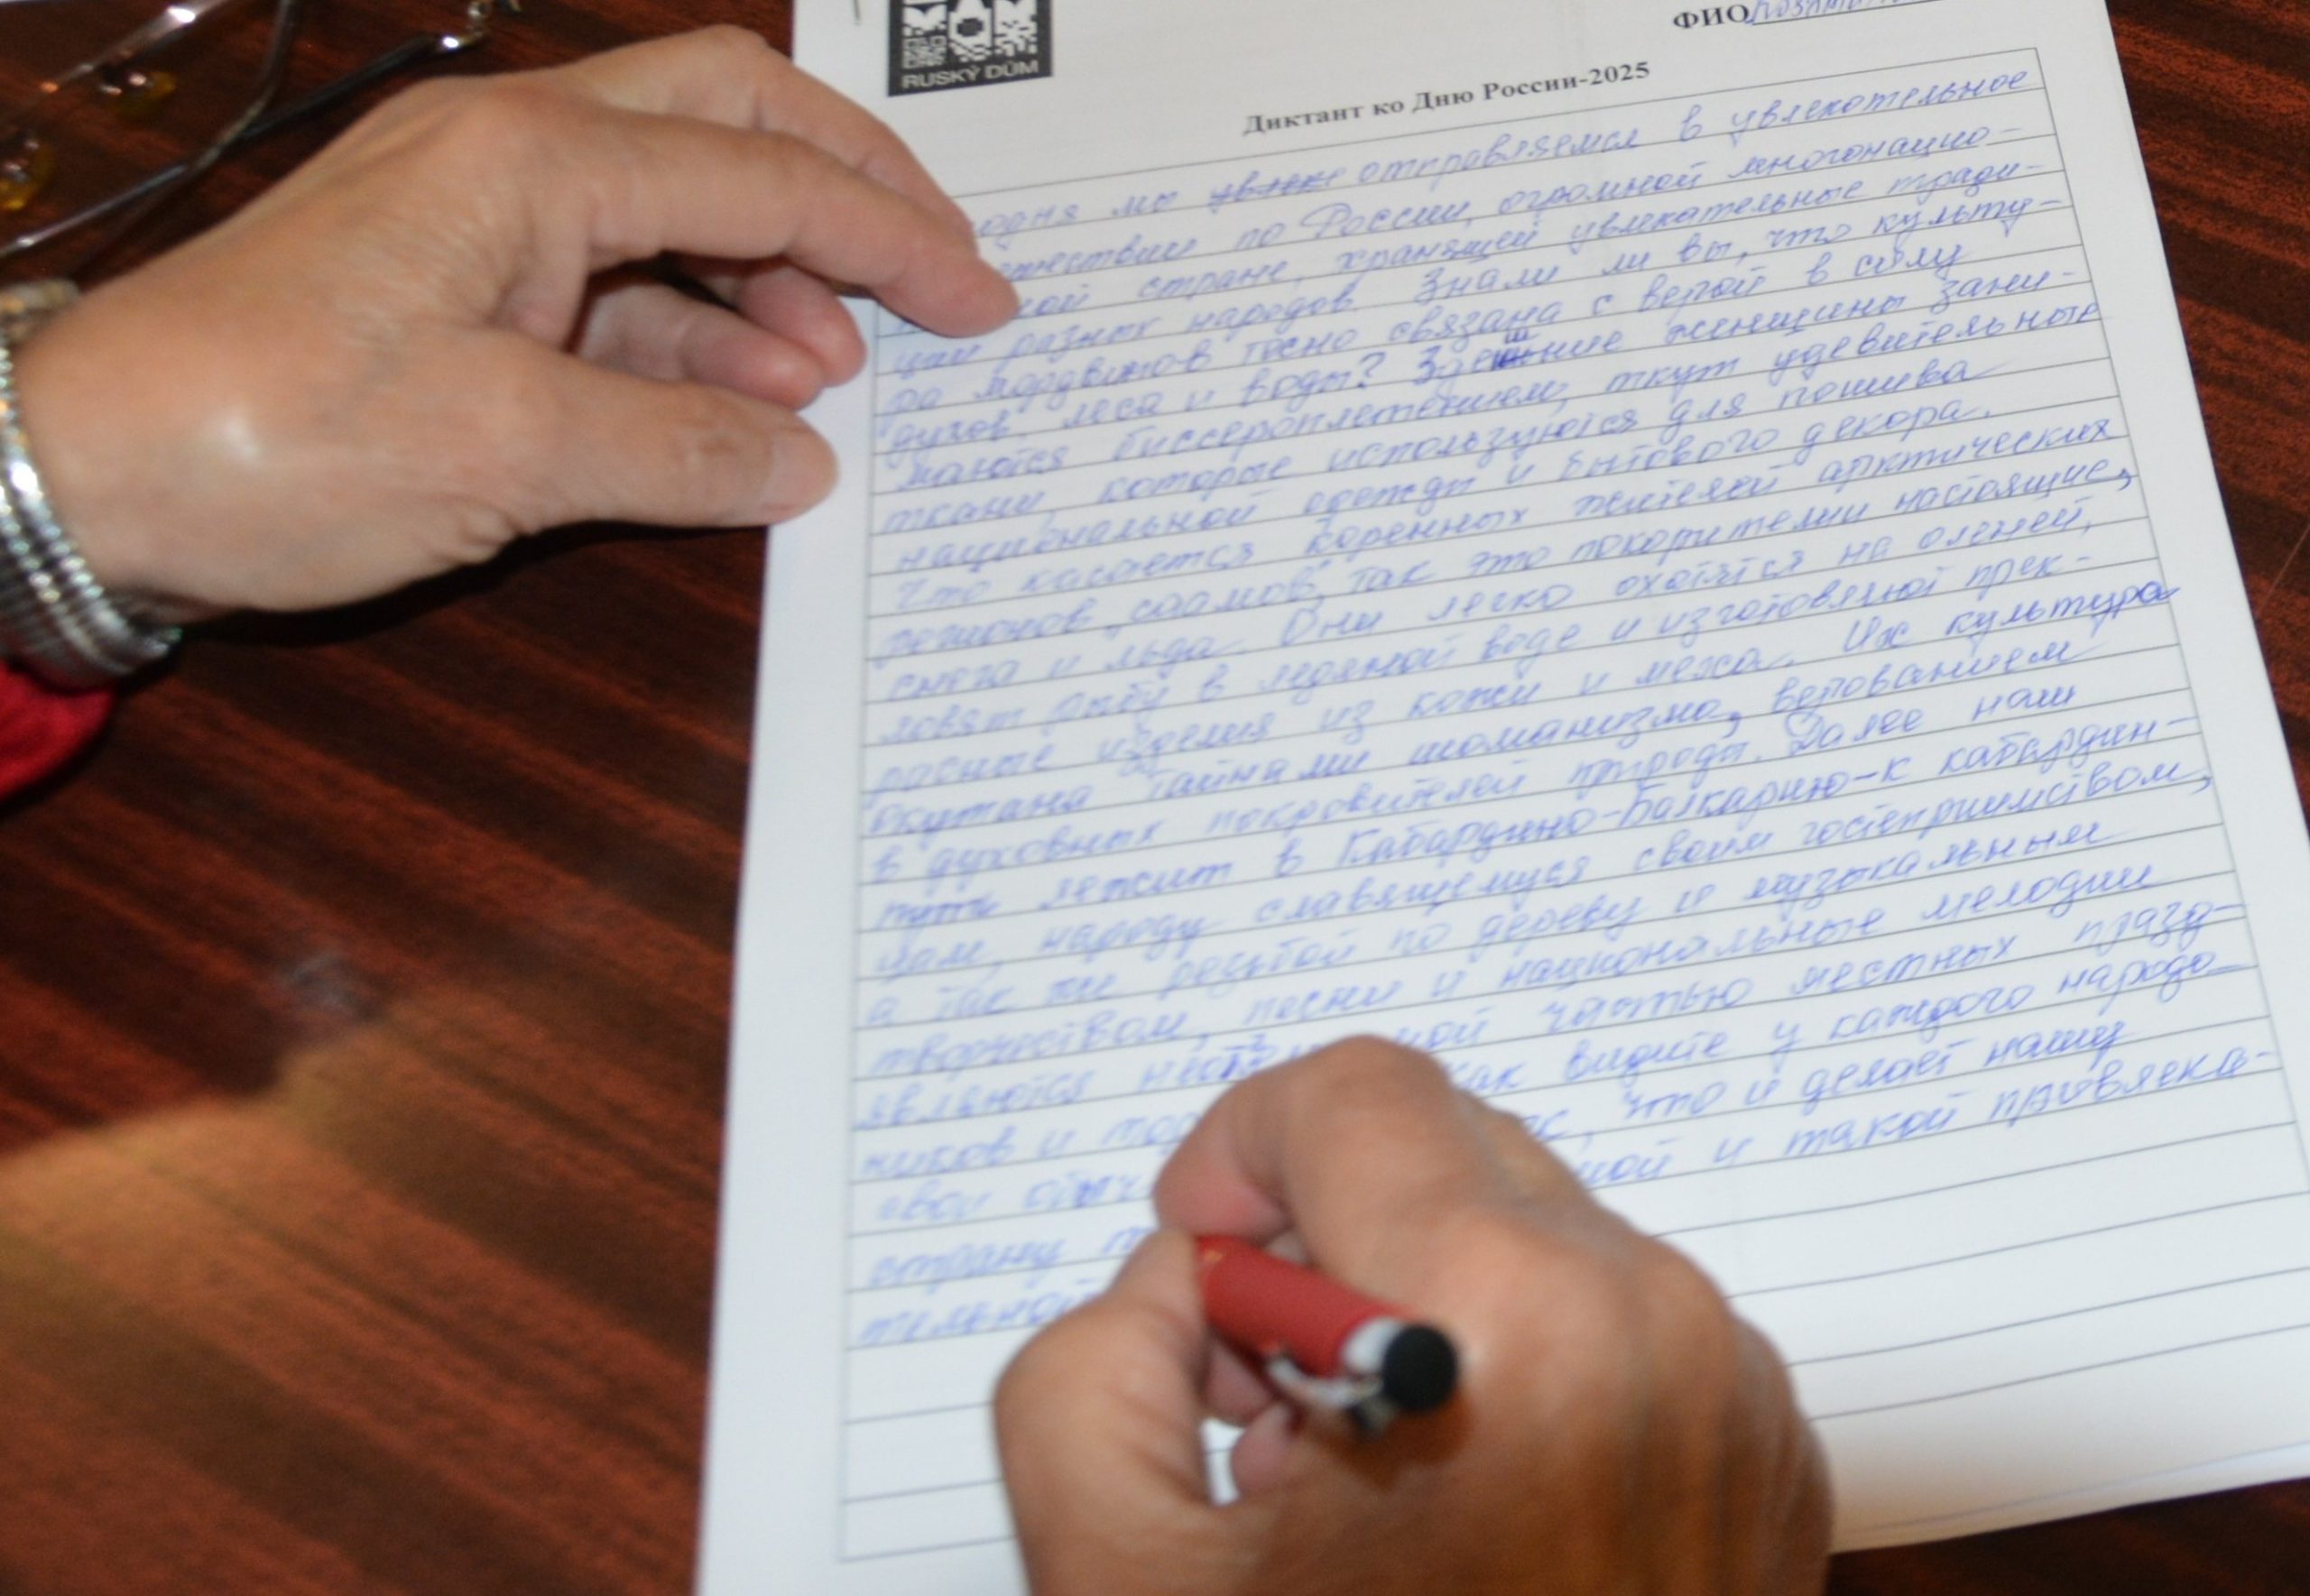 RUSKÝ DŮM
ФИО
Диктант ко Дню России-2025
одня мы увлека отправляемся в увлекательное
ествии по России, огромной многонацио-
ной стране, хранящей увлекательные тради-
ции разных народов. Знали ли вы, что культу-
ра мордвинов тесно связана с верой в силу
духов, леса и воды? Здешние женщины зани-
маются биссероплетением, ткут удевительные
ткани, которые используются для пошива
национальной одежды и бытового декора.
Что касается коренных жителей арктических
регионов "саамов", так это покорители настоящие,
снега и льда. Они легко охотятся на оленей,
ловят рыбу в ледяной воде и изготовляют прек-
расные изделия из кожи и меха. Их культура
окутана тайнами шаманизма, верованием
в духовных покровителей природы. Далее наш
путь лежит в Кабардино-Балкарию-к кабардин-
цам, народу славящемуся своим гостеприимством,
а так же резьбой по дереву и музыкальным
творчеством, песни и национальные мелодии
являются неотъ ной частью местных празд-
ников и как видите у каждого народа
свои обыч , что и делает нашу
страну ной и такой привлека-
тельной